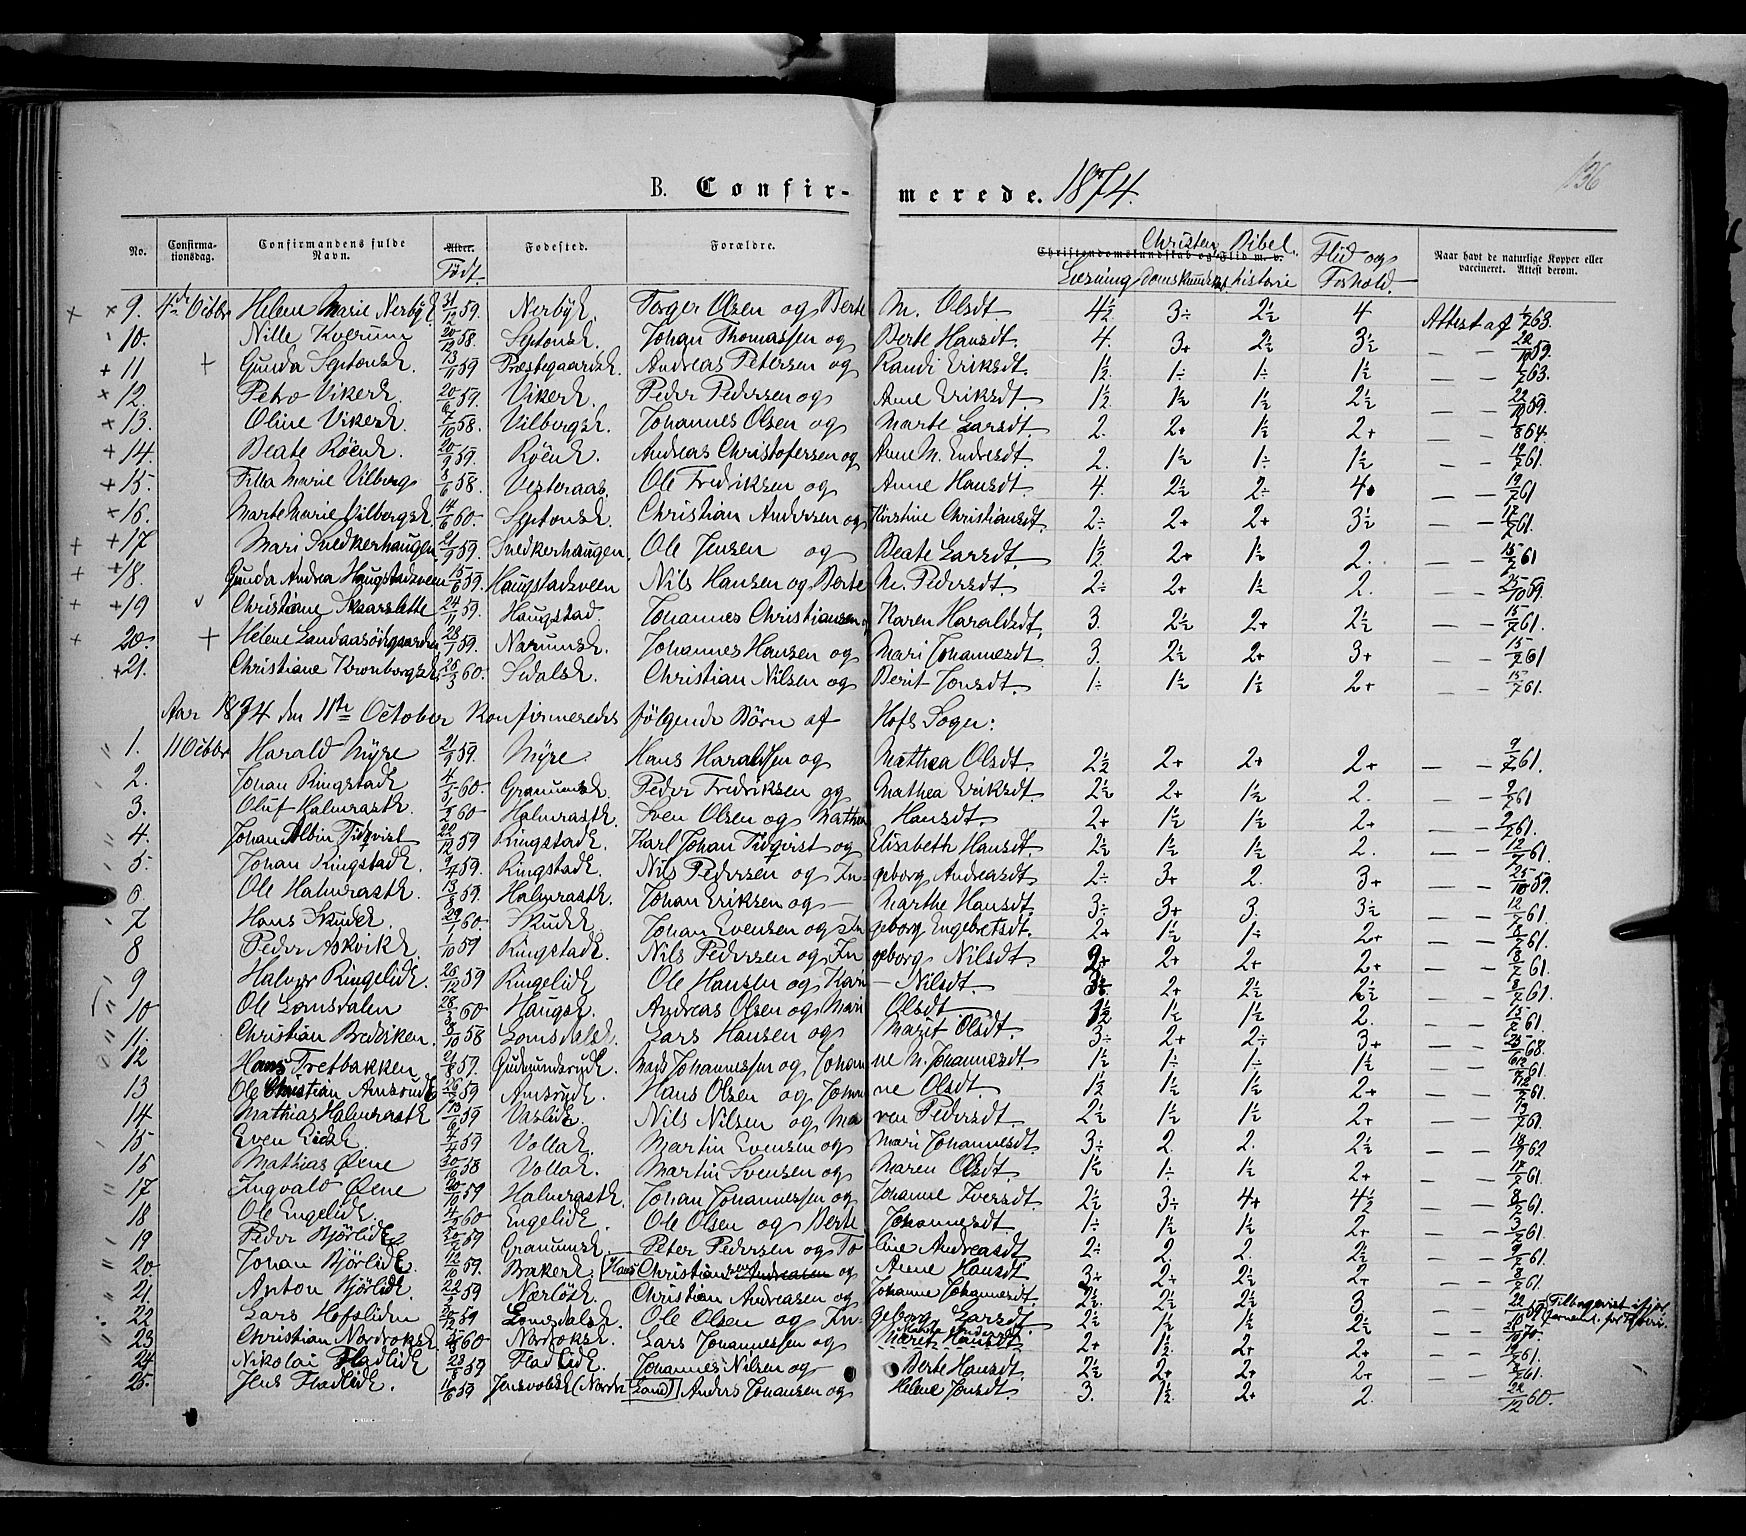 B. Confir- merede. 1874. 136
No. Confirmationsdag. Confirmandens fulde Navn. Alder. Født. Fødested. Forældre. Christendomskundskab og Flid m. v. Læsning Christendomskundskab Bibelhistorie Flid og Forhold. Naar havt de naturlige Kopper eller vaccineret. Attest derom.
9. 4de Octbr Helene Marie Nerbyk 31/12 59. Nerbyk. Torger Olsen og Berte M. Olsdt 4½ 3÷ 2½ 4. Attest af 63.
10. Nille Kværum 20/12 58. Septonsk. Johan Thomassen og Berte Hansdt. 4. 3+ 2½ 3½ — — 59.
11 Gunda Septonsk. 59 Præstegaardsk. Andreas Petersen og Randi Eriksdt. 1½ 1÷ 1÷ 1½ — — 63.
12. Petra Vikerk. 20/6 59. Vikerk. Peder Pedersen og Anne Eriksdt. 1½ 1½ 1½ 2½ — — 59.
13. Oline Vikersk. 7/10 58. Vilbergsk. Johannes Olsen og Marte Larsdt. 2. 2+ 1½ 2+ — — 64.
14. Beate Röenk. 20/9 59. Röenk. Andreas Christofersen og Anne M. Endresdt. 2. 1½ 1÷ 1½ — — 61.
15. Marie Vilbergs 8/6 58. Vesteraas. Ole Fredriksen og Anne Hansdt. 4. 2½ 2÷ 4. — — 61
16. Marte Marie Vilbergsk. 14/6 60. Septonsk. Christian Andersen og Kirstine Christiansdt. 2÷ 2+ 2+ 3½ — — 61.
17 Mari Snedkerhaugen 21/9 59. Snedkerhaugen Ole Jensen og Beate Larsdt. 1½ 2+ 1½ 2. — — 61
18. Gunda Andrea Haugstadsveen 15/6 59. Haugstadsveen Nils Hansen og Berte M. Pedersdt. 2÷ 2+ 1½ 2. — — 59.
19 Christiane Skarslette 24/11 59. Haugstad. Johannes Christiansen og Karen Haraldsdt. 3. 2½ 2+ 2½ — — 61.
20. Helene Landaasödegaarden 23/1 59. Narumsk. Johannes Hansen og Mari Johannesdt. 3. 2½ 2+ 3+ — — 61
21. Christiane Kronborgsk. 60. Sidalsk. Christian Nilsen og Berit Jonsdt. 1÷ 1½ 1½ 2+ — — 61.
Aar 1874 den 11te October Konfirmeredes følgende Børn af Hofs Sogn:
1. 11 Octbr Harald Myre 21/9 59. Myre. Hans Haraldsen og Mathea Olsdt. 2½ 2+ 2+ 2+ — — 61.
2. Johan Ringstadk 60. Granumsk. Peder Fredriksen og Mathea Eriksdt. 2½ 2+ 1½ 2. — — 61
3. Oluf Halmrastk. 60 Halmrastk. Sven Olsen og Mathea Hansdt. 2+ 1½ 1½ 2+ — — 61.
4. Johan Albin Tidqvist 22/12 59 Ringstadk. Karl Johan Tidqvist og Elisabeth Hansdt. 2½ 1½ 1½ 2. — — 61.
5. Johan Ringstadk. 9/4 59. Ringstadk. Nils Pedersen og Ingeborg Andreasdt. 2÷ 3+ 2. 3+ — — 59.
6. Ole Halmrastk. 13/8 59. Halmrastk. Johan Eriksen og — Marthe Hansdt. 3÷ 3+ 3. 3½ — — 61.
7 Hans Skudek 29/1 60. Skudek Johan Evensen og Ingeborg Engebretsdt. 2+ 1½ 1÷ 2+ — — 61.
8 Peder Askvikk 59 Ringstadk. Nils Pedersen og Ingeborg Nilsdt. 2+ 2+ 2+ 2+ — — 61.
9 Halvor Ringelidk 59 Ringelidk Ole Hansen og Kari — Nilsdt. 3½ 2+ 2½ 2½ — — 61.
10 Ole Lomsdalen 28/3 60. Haugsk. Andreas Olsen og Mari Olsdt. 1½ 1½ 1½ 2. — — 61.
11. Christian Bredviken. 58 Lomsdalsk. Lars Hansen og Marit Olsdt. 3÷ 2+ 2÷ 3+ — — 68.
12 Hans Tretbakken 21/8 59. Gudmundsrudk. Mads Johannessen og Johanne M. Johannesdt. 1½ 1÷ 1÷ 1½ — — 61.
13 Ole Christian Amsrudk 59 Amsrudk. Hans Olsen og Johanne Olsdt. 1½ 1½ 1½ 2+ — — 61.
14. Mathias Halmrastk 59 Vaslidk. Nils Nilsen og Maren Pedersdt. 2½ 1½ 1½ 2+ — — 61.
15 Even Eidsk. 59 Vollak. Martin Evensen og Mari Johannesdt 3÷ 2. 2. 2½ — — 62
16 Mathias Øene 58 Vollak. Martin Svensen og Maren Olsdt. 1½ 1÷ 1½ 2+ — — 61.
17 Ingvald Øene 59 Halmrastk. Johan Johannessen og Johanne Iversdt. 2½ 3÷ 4+ 4½ — — 61.
18 Ole Engelidk. 60 Engelidk. Ole Olsen og Berte Johannesdt 1÷ 1½ 1½ 2+ — — 61.
19 Peder Bjørlidk 59 Granumsk. Peter Pedersen og Toline Andreasdt 2÷ 2 2. 2½ — — 61.
20 Johan Bjørlidk. 59. Brakerk. Hans Christiansen Andreasen og Anne Hansdt 3+ 2+ 2½ 2+ — — 61.
21. Anton Bjørlidk. 22/2 59 Nærløsk. Christian Andreasen og Johanne Johannesdt. 2½ 2½ 2½ 3 — —
22 Lars Hofslien 59 Lomsdalsk. Ole Olsen og Ingeborg Larsdt. 2½ 1½ 1½ 2½ — —
23 Christian Nordroksk. 60 Nordroksk. Lars Johannessen og Marit Hansdt 2+ 1½ 2+ 2+ — — 61.
24. Nikolai Fladlidk 59 Fladlidk Johannes Nilsen og — Berte Hansdt. 2½ 2+ 2+ 2+ — — 61.
25. Jens Fladlidk. 59 Jensvolsk (Nordre Land) Anders Johansen og Helene Jonsdt. 3. 1½ 2+ 2. 22/12 60.